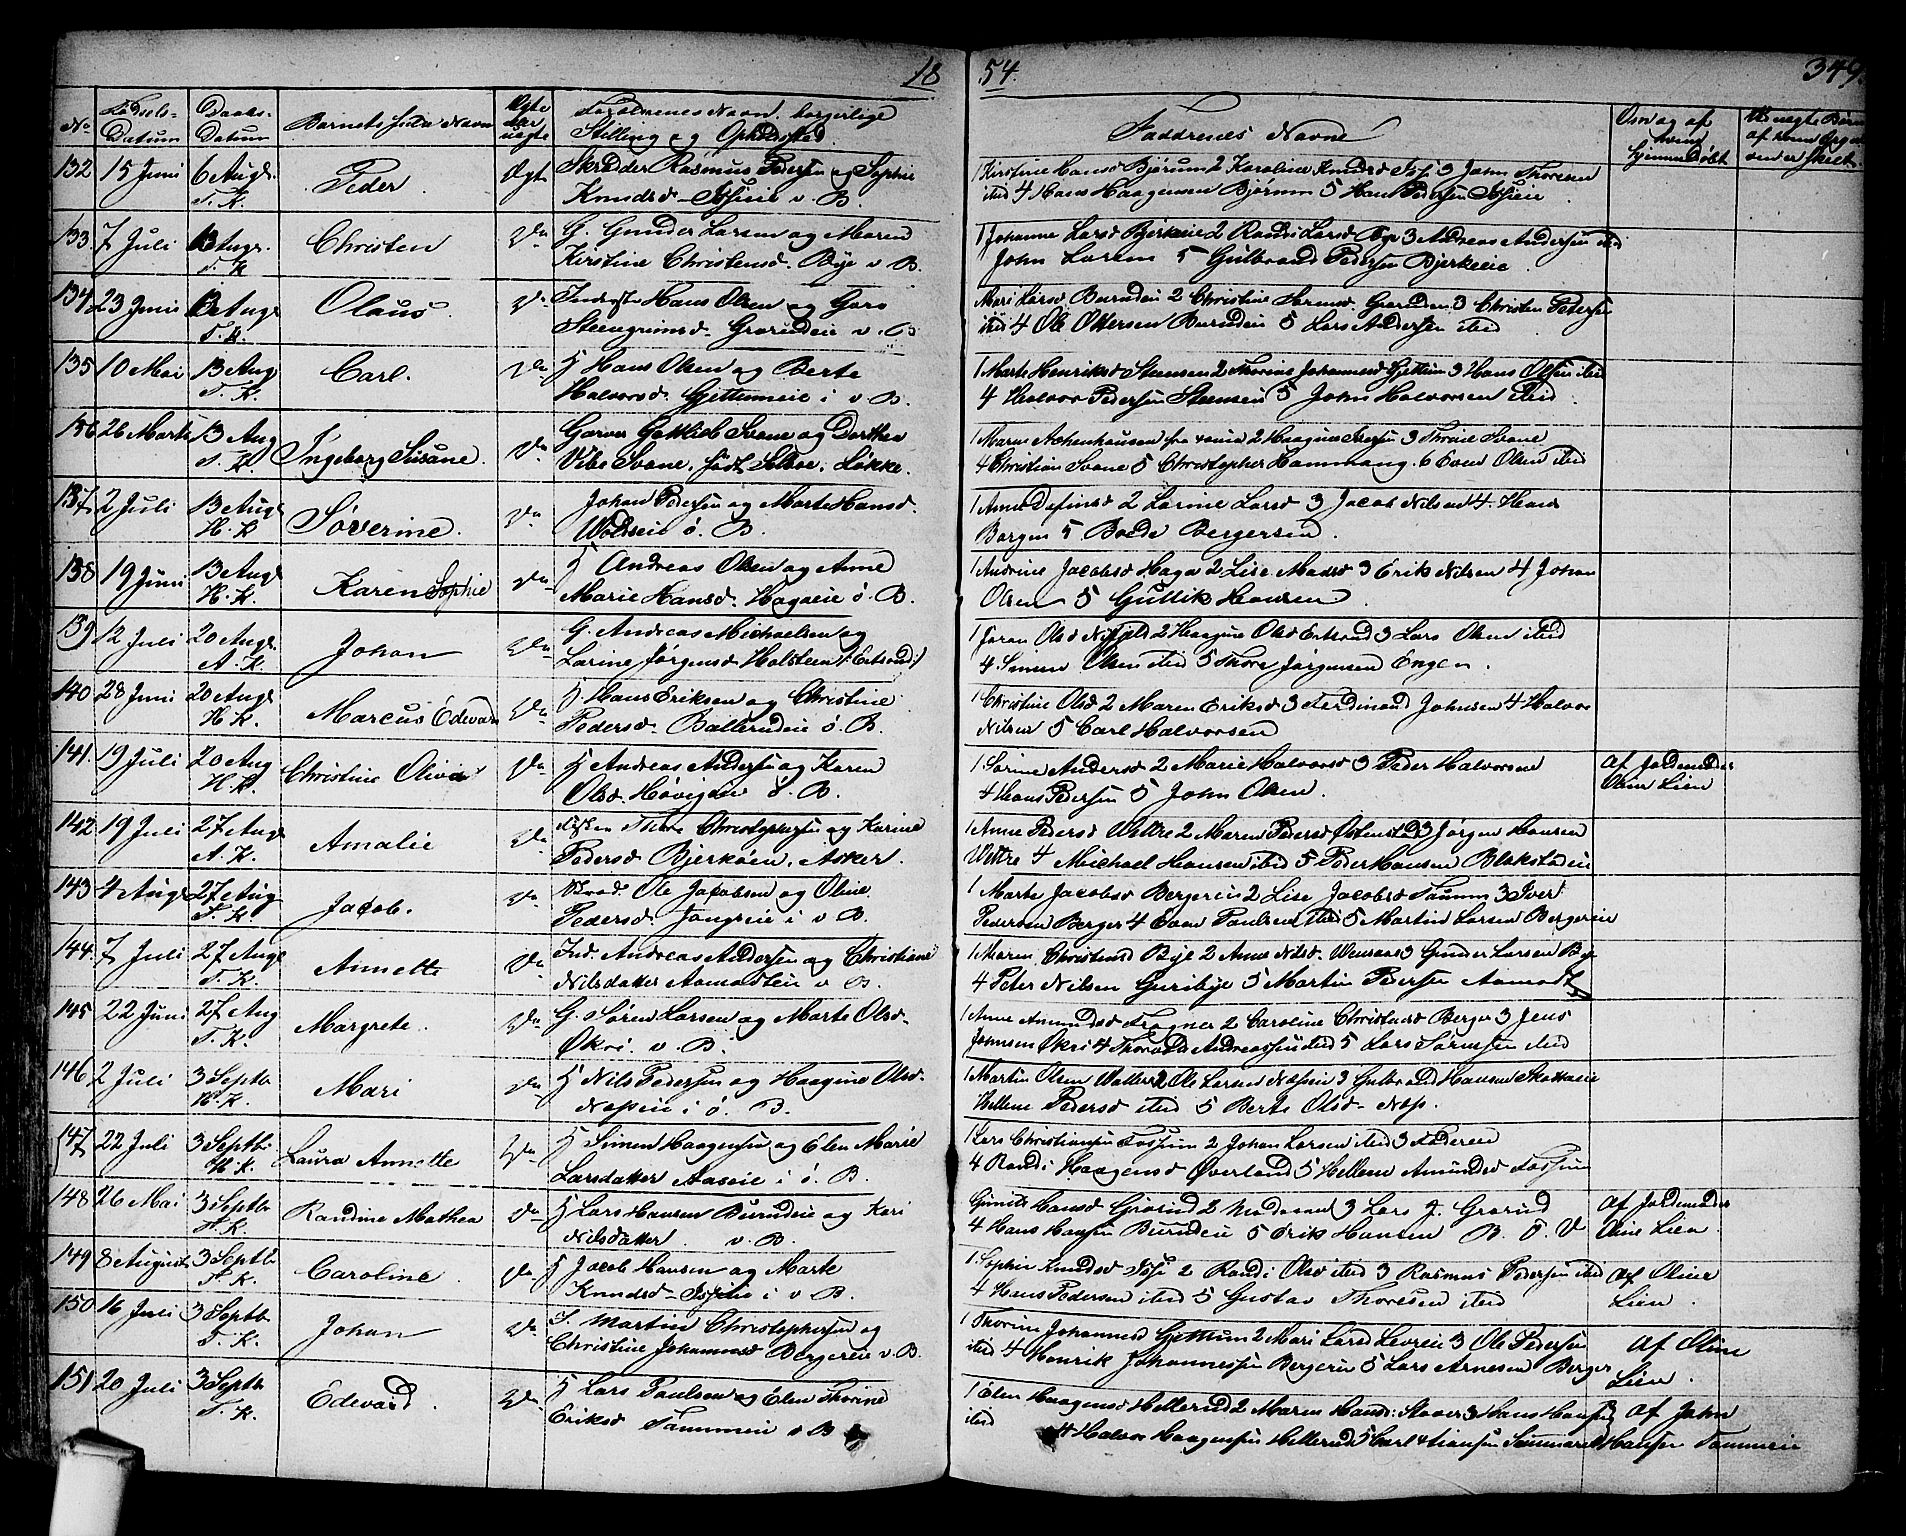 1854.
349.
No
Fødsels-Datum
Daabs-Datum
Barnets fulde Navn
Ægte eller uægte
Forældrenes Navn, borgerlige Stilling og Opholdsted.
Faddrenes Navne
Om og af hvem hjemmedøbt
132 15 Juni 6 Augs. Peder. Ægt Skrædder Rasmus Pedersen og Sophie
T. K. Knudsd. v. B.
1 Kirstine Hansd Bjørum 2 Karoline Knudsd 3 John Thoresen
itid 4 Hans Haagensen Bjørum 5 Hans Pedersen
133. 7 Juli 13 Augs. Christen Do G. Gunder Larsen og Maren
T. K Kirstine Christensd. Bye v B.
1 Johanne Larsd Bjerkeie 2 Randi Larsd Bye 3 Andreas Andersen itid
John Larsen 5 Gulbrand Pedersen Bjerkeie.
134 23 Juni 13 Augs Olaus. Do Inderst Hans Olsen og Goro
T. K. Steengrimsd. Grorudeie v. B
Mari Larsd Burudeie 2 Christine Gorud 3 Christen Petersen
itid 4 Ole Ottersen Burudeie 5 Lars Andersen itid
135 10 Mai 13 Aug Carl. Do H Hans Olsen og Berte
T. K. Halvorsd. Gjettumeie i v B.
1 Marte Henriksd Steensen 2 Thorine Johannesd Gjettum 3 Hans Olsen itid
4 Halvor Pedersen 5 John Halvorsen itid.
136 26 Marts 13 Aug Ingeborg Susane. Do Garver Gottlieb Svane og Dorthea
T. K Vibe Svane, født Løkke.
1 Maren 2 Haagine 3 Thrine Svane
4 Christian Svane 5 Christopher Hammang. 6 Even Olsen itid
137. 2 Juli 13 Augs Søverine. Do Johan Pedersen og Marte Hansd.
H. K ø. B.
1 Anne 2 Larine Larsd 3 Jacob Nilsen 4. Hans
Borgen 5 Boede Bergersen.
138 19 Juni 13 Augs Karen Sophie Do H Andreas Olsen og Anne
H. K. Marie Hansd. Hagaeie ø. B.
1 Andrine Jacobsd Haga 2 Lise Madsd 3 Erik Nilsen 4 Johan
Olsen 5 Gullik Hansen.
139 12 Juli 20 Augs. Johan Do G. Andreas Michaelsen og
A. K. Larine Jørgensd Holsteen
1 Joran Olsd 2 Haagine Olsd 3 Lars Olsen itid
4 Simen Olsen itid 5 Thore Jørgensen Engen.
140 28 Juni 20 Augs Marcus Edevard Do H Hans Eriksen og Christine
H. K. Pedersd. Ballerudeie ø. B.
1 Christine Olsd 2 Maren Eriksd 3 Ferdinand Johnsen 4 Halvor
Nilsen 5 Carl Halvorsen
141. 19 Juli 20 Aug Christine Olivia Do H Andreas Andersen og Karen
H. K. Olsd. ø. B.
1. Sørine Andersd 2 Marie Halvorsd 3 Peder Halvorsen
4 Hans Pedersen 5 John Olsen.
af Jordemoder
Oline Lien
142 19 Juli 27 Augs Amalie Do Thore Christophersen og Karine
A. K. Pedersd Bjerkøen. Asker.
1 Anne Pedersd Wettre 2 Maren Pedersd Østenstad 3 Jørgen Hansen
Wettre 4 Michael Hansen itid 5 Peder Hansen
143 4 Augs 27 Aug Jacob. Do Ole Jacobsen og Oline
T. K. Pedersd. i v B.
1 Marte Jacobsd Bergereie 2 Lise Jacobsd Tanum 3 Iver
Pedersen Berger 4 Even Paulsen itid 5 Martin Larsen Bergereie
144. 7 Juli 27 Augs Annette Do Ind. Andreas Andersen og Christiane
T. K. Nilsdatter Aamodteie v B.
1 Maren Christensd Bye 2 Anne Nilsd. 3 Gunder Larsen Bye
4 Peter Nilsen Guribye 5 Martin Pedersen Aamodt
145 22 Juni 27 Aug Margrete. Do G. Søren Larsen og Marte Olsd.
T. K. Økri. v. B.
1 Anne Amundsd Frogner 2 Caroline Christensd Berger 3 Jens
Johnsen Økri 4 Andreassen itid 5 Lars Sørensen itid
146 2 Juli 3 Septb Mari Do H Nils Pedersen og Haagine Olsd.
H. K. Næseie i ø. B.
1 Martin Olsen 2 Ole Larsen 3 Gulbrand Hansen
Hellene Pedersd itid 5 Berte Olsd. Næs.
147 22 Juli 3 Septbr Laura Annette Do H Simen Haagensen og Elen Marie
H. K. Larsdatter Aaseie i ø. B.
1 Lars Christiansen Fossum 2 Johan Larsen itid 3 Faderen
4 Randi Haagensd Øverland 5 Hellene Amundsd Fossum
148 26 Mai 3 Septb Randine Mathea Do H Lars Hansen Burudeie og Kari
H. K Nilsdatter. v. B.
Hansd Gorud 2 3 Lars J. Gorud
4 Hans Hansen Burudeie 5 Erik Hansen
af Jordemoder
Oline Lien
149 8 August 3 Septb Caroline. Do H Jacob Hansen og Marte
T. K. Knudsd. i v B.
1 Sophie Knudsd 2 Randi Olsd itid 3 Rasmus Pedersen itid
4 Hans Pedersen itid 5 Gustav Thoresen itid
af Oline
Lien.
150 16 Juli 3 Septb Johan Do Martin Christophersen og
T. K. Christine Johannesd Bergereie v. B.
1 Thorine Johannesd Gjettum 2 Mari Larsd 3 Ole Pedersen
itid 4 Henrik Johannessen Bergereie 5 Lars Arnesen Berger
af Oline
Lien.
151 20 Juli 3 Septb Edevard. Do H Lars Paulsen og Elen Thorine
T. K. Eriksd Tanumeie v B
1 Elen Haagensd Hellerud 2 Maren Hansd: 3 Hans Hansen
itid 4 Halvor Haagensen Hellerud 5 Carl
af John
Hansen Tanumeie